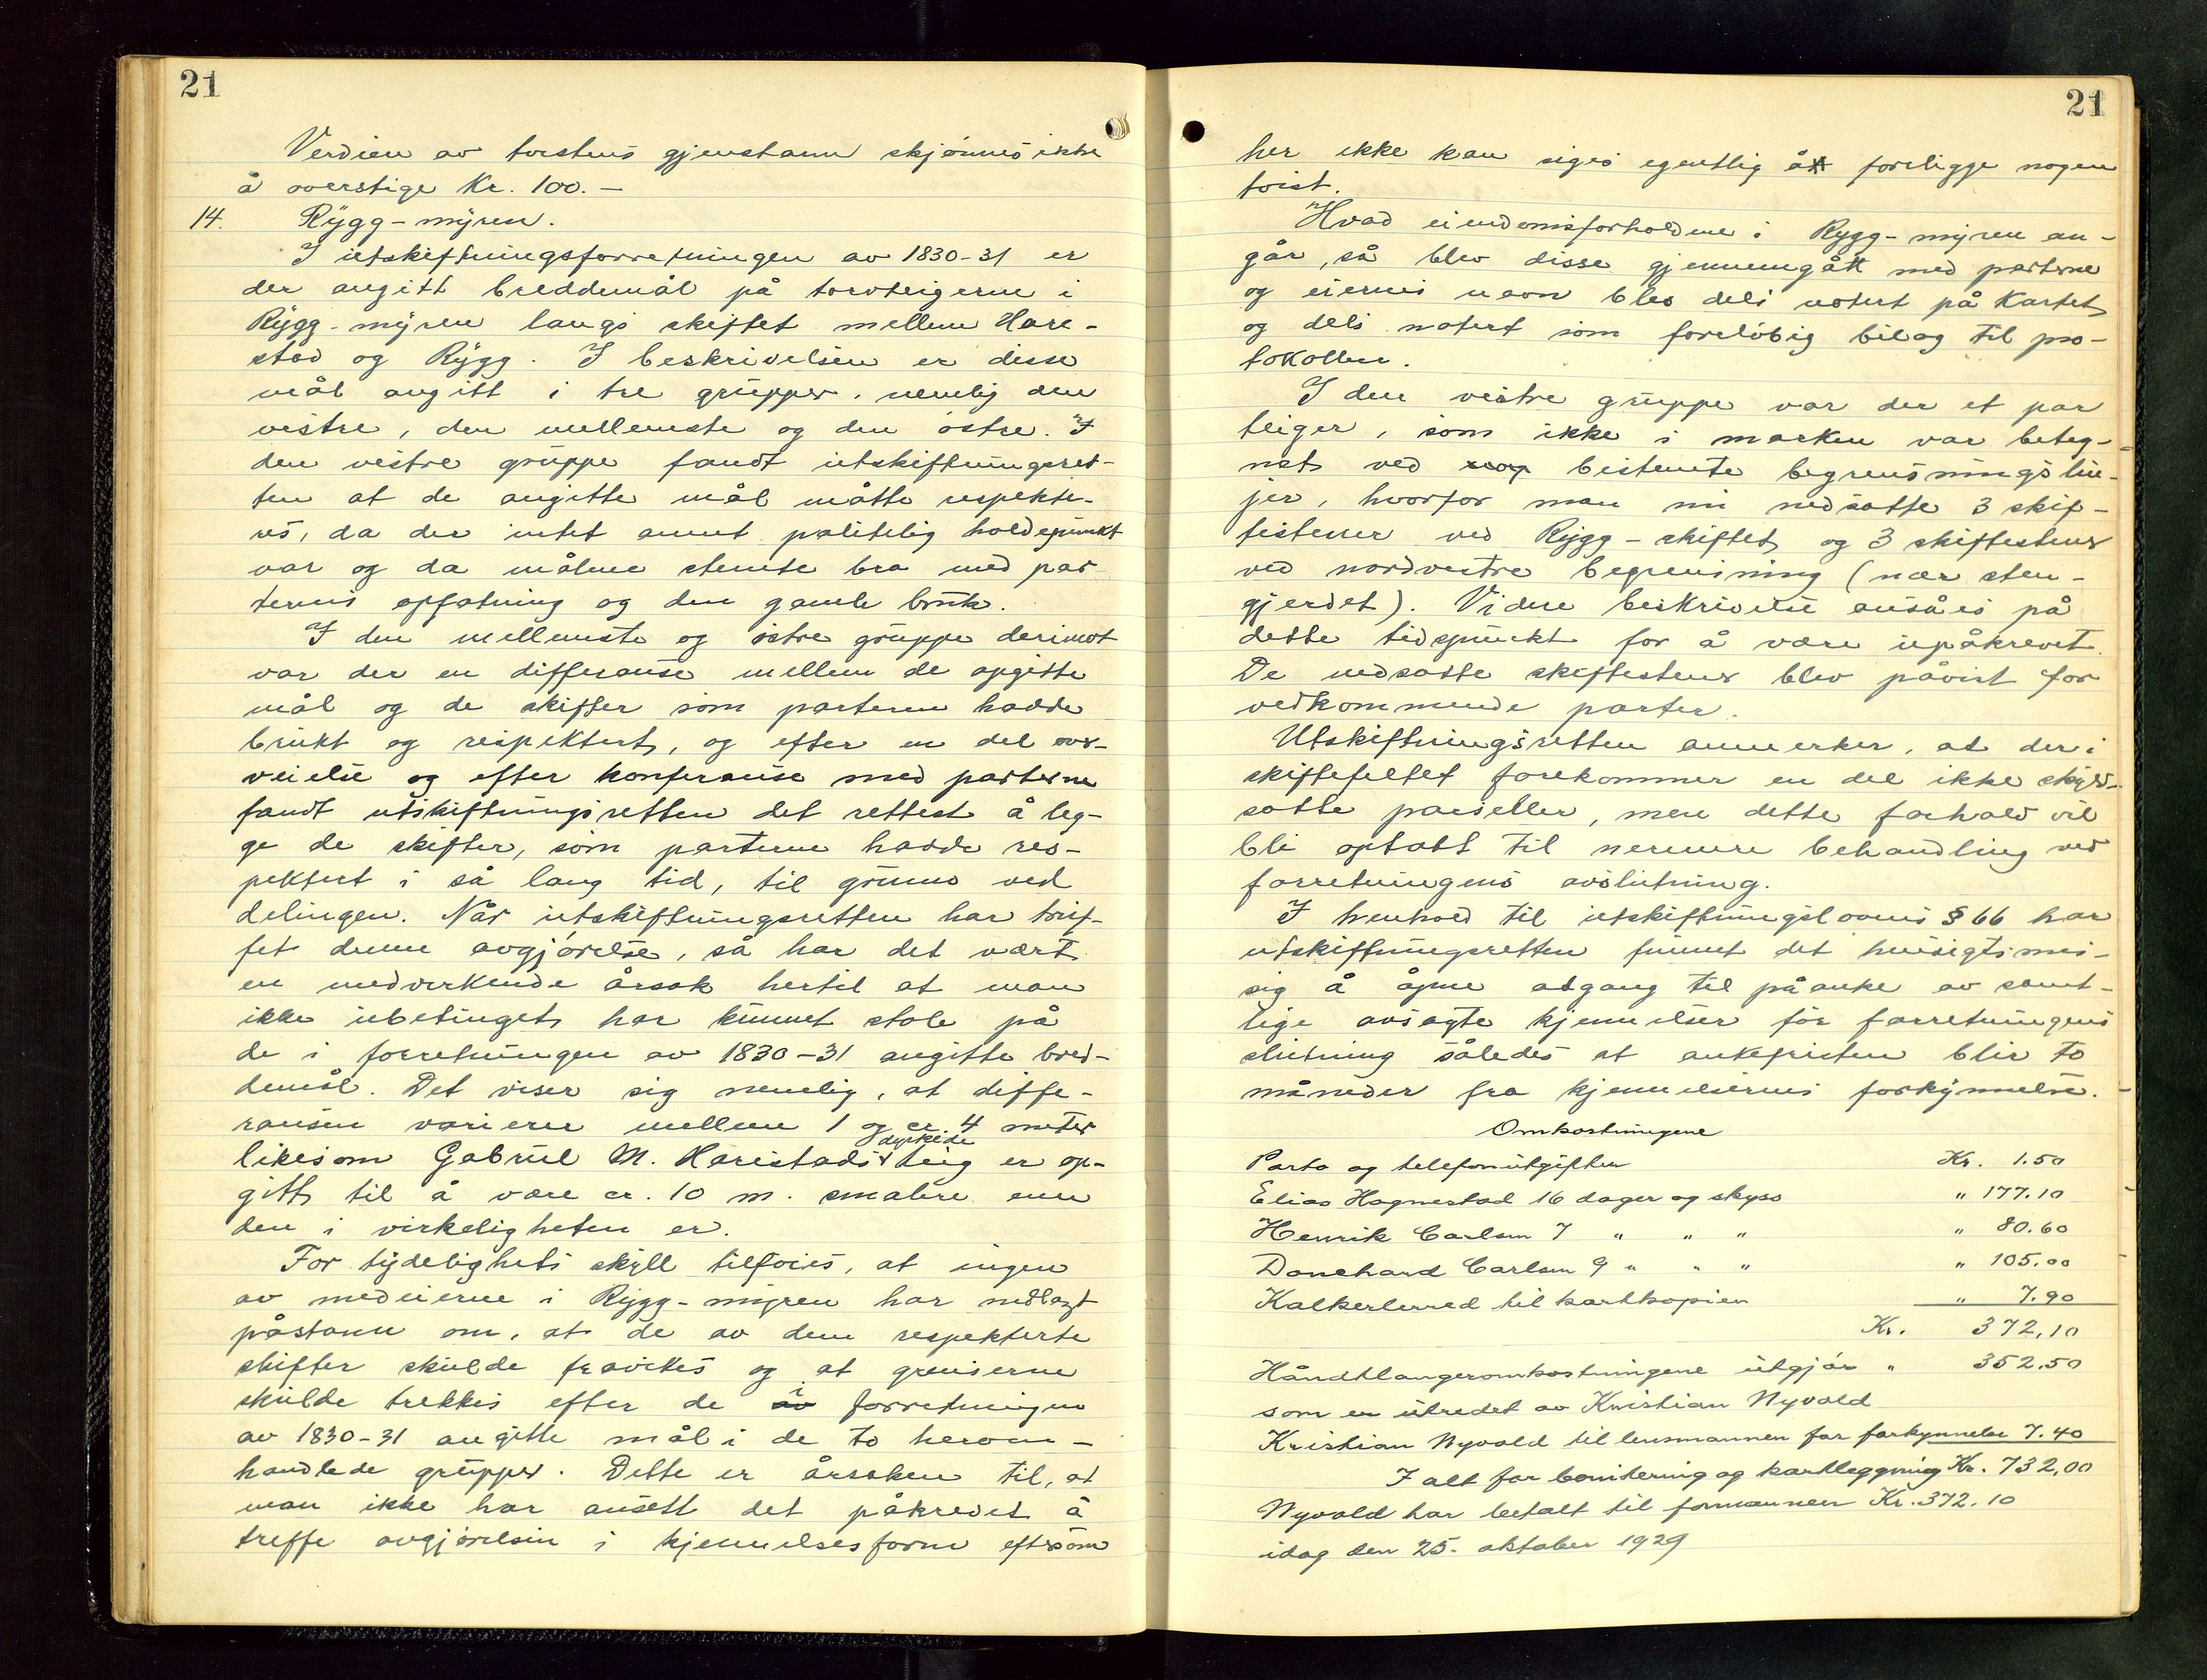 21
Verdien av tvistens gjenstann skjønnes ikke
å overstige Kr. 100.—
14. Rygg-myren.
I utskiftningsforretningen av 1830-31 er
der angitt breddemål på torvteigerne i
Rygg-myren langs skiftet mellem Hare-
stad og Rygg. I beskrivelsen er disse
mål angitt i tre grupper, nemlig den
vestre, den mellemste og den østre. I
den vestre gruppe fandt utskiftningsret-
ten at de angitte mål måtte respekte-
res, da der intet annet pålitelig holdepunkt
var og da målene stemte bra med par-
ternes opfatning og den gamle bruk.
I den mellemste og østre gruppe derimot
var der en differanse mellem de opgitte
mål og de skifter som parterne hadde
brukt og respektert, og efter en del over-
veielse og efter konferanse med parterne
fandt utskiftningsretten det rettest å leg-
ge de skifter, som parterne hadde res-
pektert i så lang tid, til grunn ved
delingen. Når utskiftningsretten har truf-
fet denne avgjørelse, så har det vært
en medvirkende årsak hertil at man
ikke ubetinget har kunnet stole på
de i forretningen av 1830-31 angitte bred-
demål. Det viser sig nemlig, at diffe-
ransen varierer mellem 1 og cr. 4 meter
likesom Gabriel M. Harestads dyrkede teig er op-
gitt til å være cr. 10 m. smalere enn
den i virkeligheten er.
For tydelighets skyll tilføies, at ingen
av medeierne i Rygg-myren har nedlagt
påstann om, at de av dem respekterte
skifter skulde fravikes og at grenserne
skulde trekkes efter de av i forretningen
av 1830-31 angitte mål i de to herom-
handlede grupper. Dette er årsaken til, at
man ikke har ansett det påkrevet å
treffe avgjørelsen i kjennelsesform eftersom
21
her ikke kan siges egentlig å foreligge nogen
tvist.
Hvad eiendomsforholdene i Rygg-myren an-
går, så blev disse gjennemgått med parterne
og eiernes navn blev dels notert på kartet
og dels notert som foreløbig bilag til pro-
tokollen.
I den vestre gruppe var der et par
teiger, som ikke i marken var beteg-
net ved bestemte begrensningslin-
jer, hvorfor man nu nedsatte 3 skif-
testener ved Rygg-skiftet og 3 skiftestener
ved nordvestre begrensning (nær sten-
gjerdet). Videre beskrivelse ansåes på
dette tidspunkt for å være upåkrevet.
De nedsatte skiftestener blev påvist for
vedkommende parter.
Utskiftningsretten anmerker, at der i
skiftefeltet forekommer en del ikke skyld-
satte parseller, men dette forhold vil
bli optatt til nermere behandling ved
forretningens avslutning.
I henhold til utskiftningslovens § 66 har
utskiftningsretten funnet det hensigtsmes-
sig å åpne adgang til påanke av samt-
lige avsagte kjennelser før forretningens
slutning således at ankefristen blir to
måneder fra kjennelsernes forkynnelse.
Omkostningene
Porto og telefonutgifter Kr. 1.50
Elias Hognestad 16 dager og skyss " 177.10
Henrik Carlsen 7 " " " " 80.60
Danchard Carlsen 9 " " " " 105.00
Kalkerlerred til kartkopien " 7.90
Kr. 372,10
Håndtlangeromkostningene utgjør " 352.50
som er utredet av Kristian Nyvold
Kristian Nyvold til lensmannen for forkynnelse 7.40
I alt for bonitering og kartleggning Kr. 732,00
Nyvold har betalt til formannen Kr. 372.10
idag den 25. oktober 1929